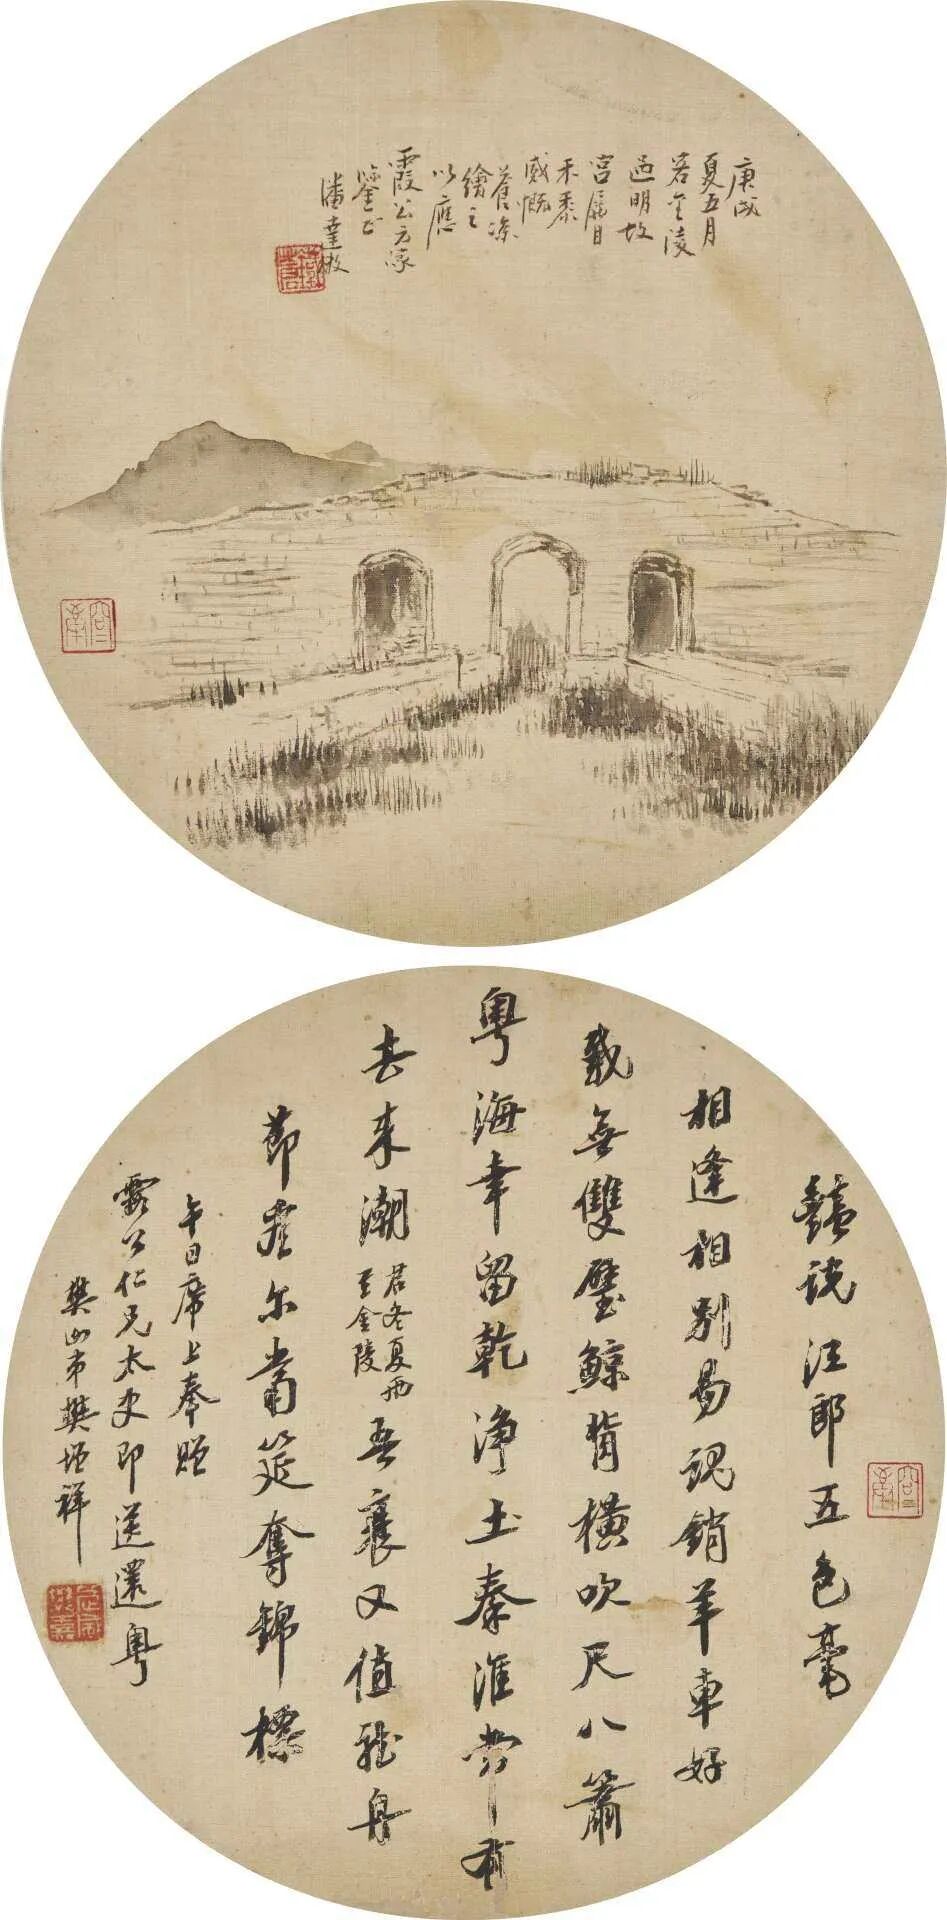 庚戌
夏五月
客金陵
過明故
宮屬目
禾黍
感慨
蒼涼
繪之
以應
霞公方家
鑒正
潘達微
豔說汪郎五色毫
相逢相別易魂銷羊車好
載無雙璧鯨背橫吹尺八簫
粵海幸留乾淨土秦淮常有
去來潮君冬夏兩至金陵吾衰又值龍舟
節看尔當筵奪錦標
午日席上奉贈
霞公仁兄太史即送還粵
樊山弟樊增祥